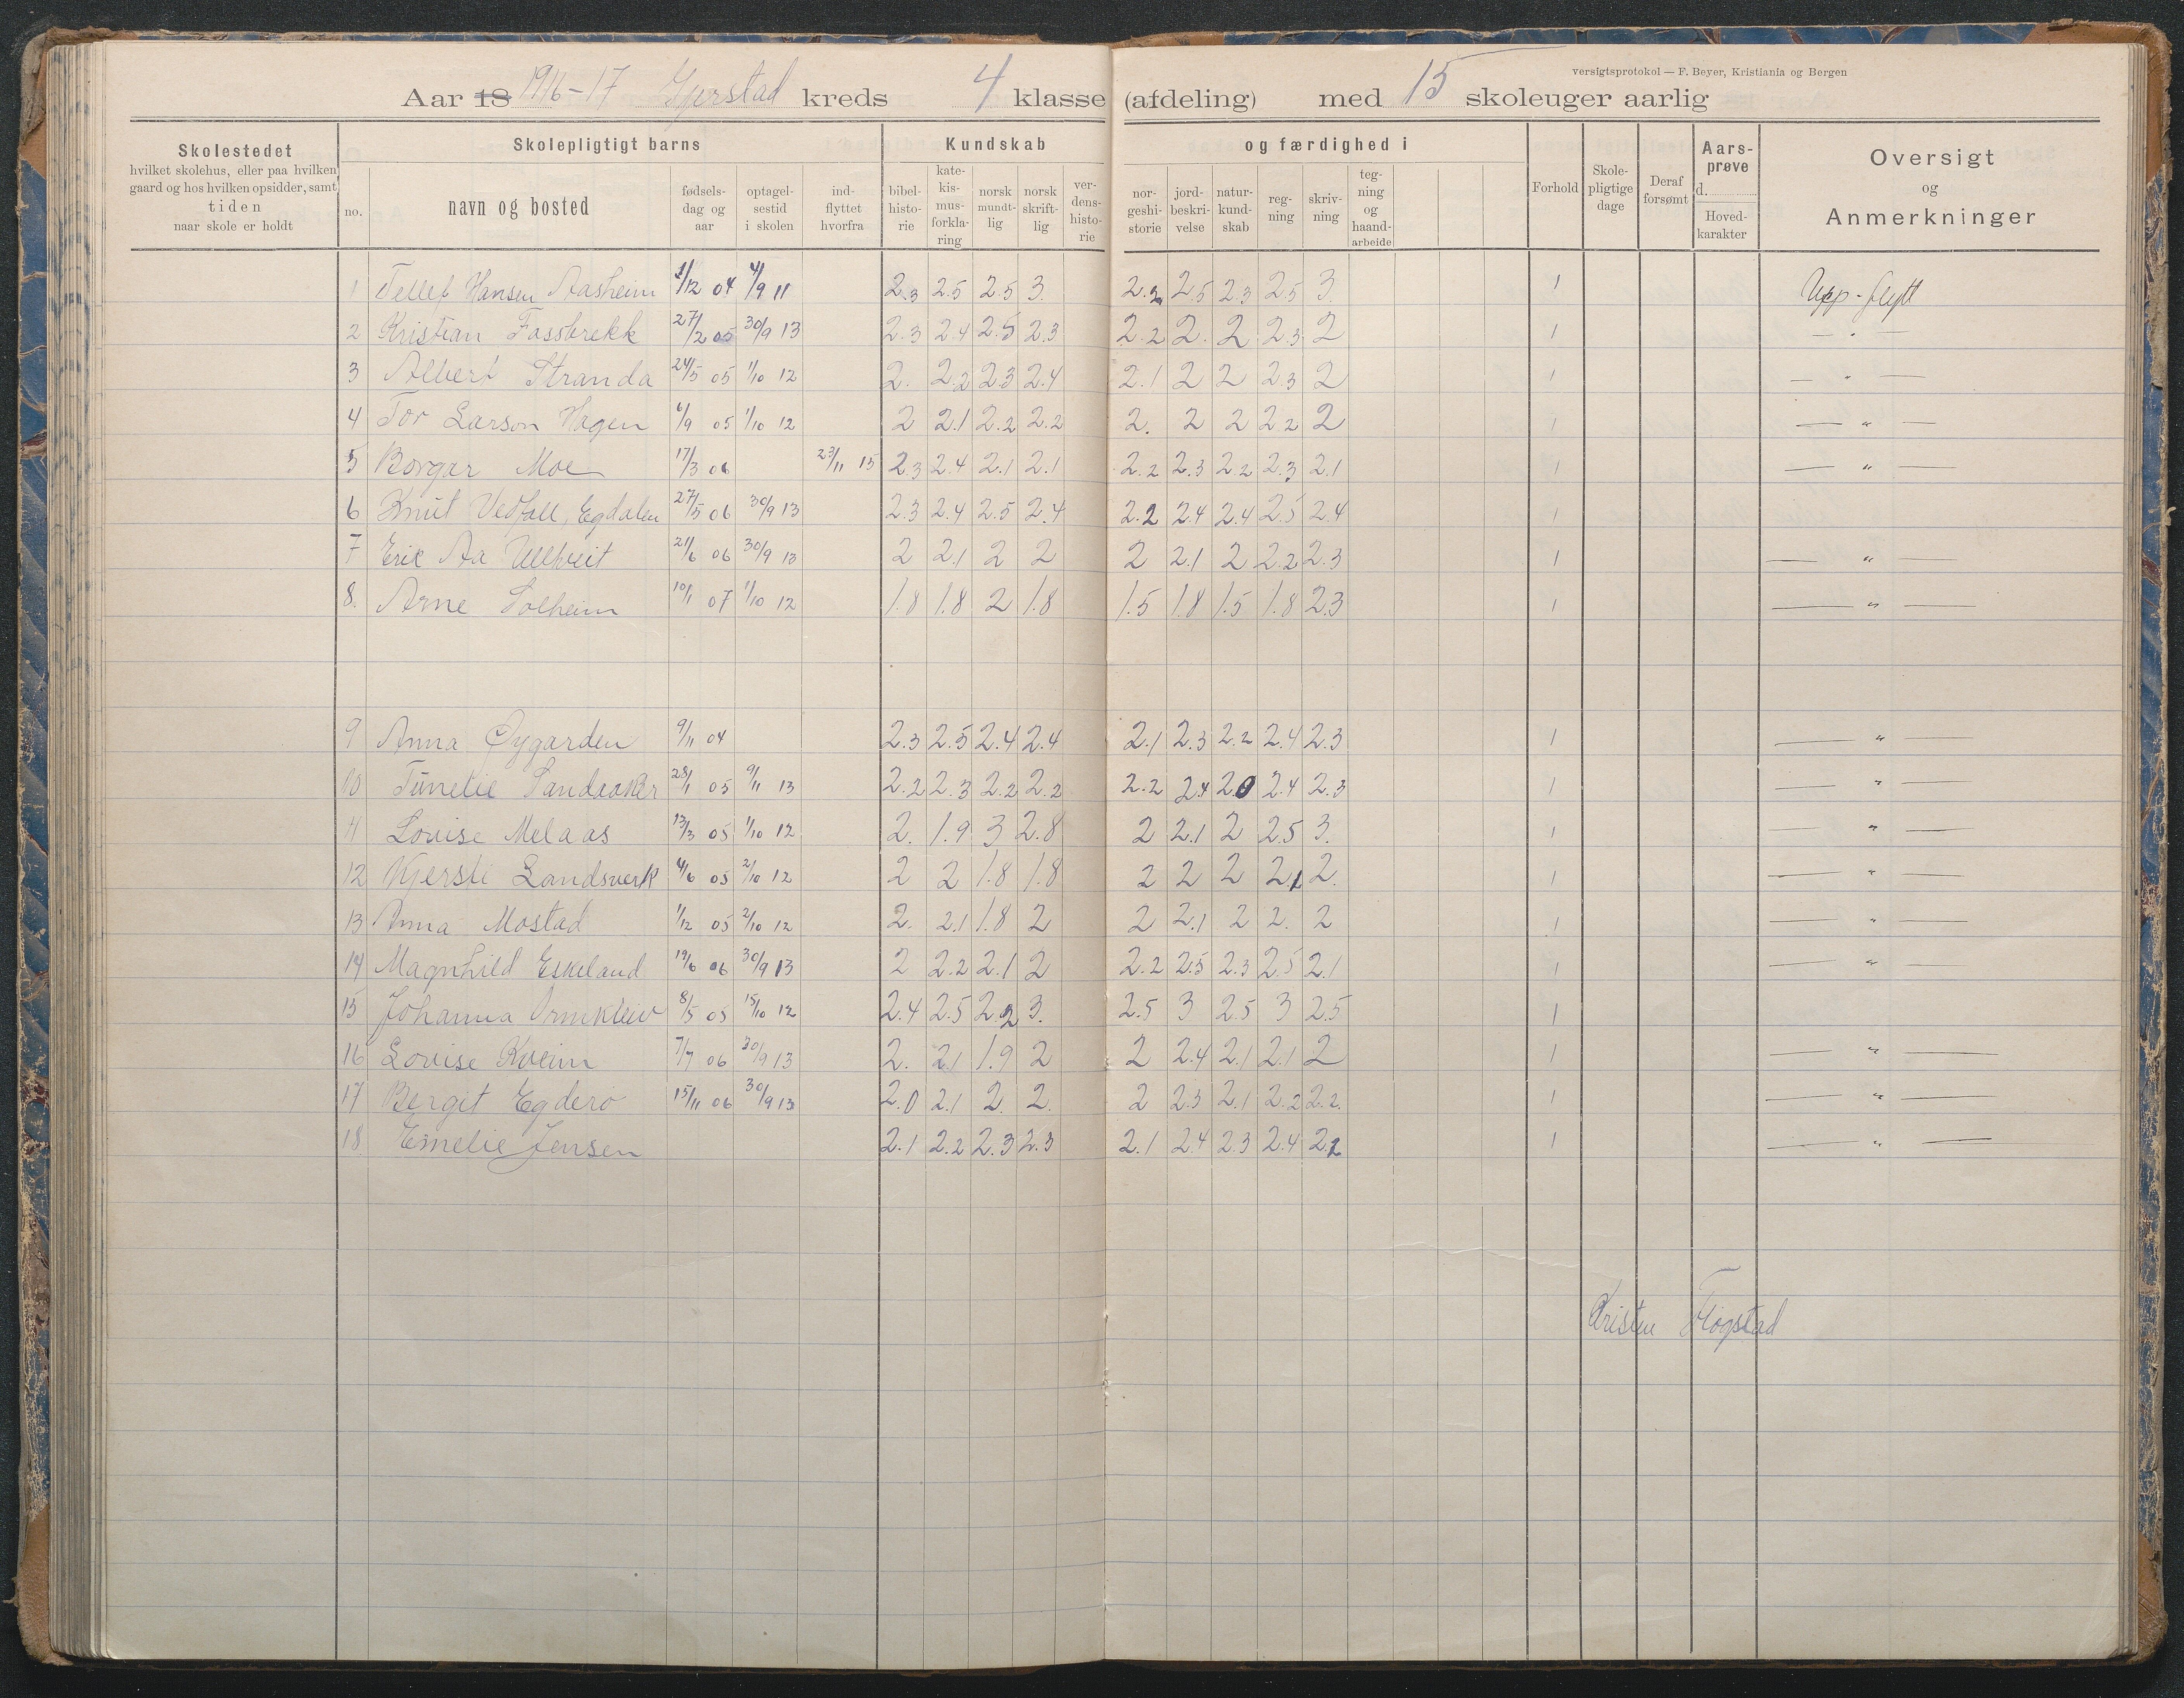 versigtsprotokol — F. Beyer, Kristiania og Bergen
Aar 18 1916-17 Gjerstad kreds 4 klasse (afdeling) med 15 skoleuger aarlig
Skolestedet
hvilket skolehus, eller paa hvilken
gaard og hos hvilken opsidder, samt
tiden
naar skole er holdt
Skolepligtigt barns
no.
navn og bosted
fødsels-
dag og
aar
optagel-
sestid
i skolen
ind-
flyttet
hvorfra
Kundskab
bibel-
histo-
rie
kate-
kis-
mus-
forkla-
ring
norsk
mundt-
lig
norsk
skrift-
lig
ver-
dens-
histo-
rie
og færdighed i
nor-
geshi-
storie
jord-
beskri-
velse
natur-
kund-
skab
reg-
ning
skriv-
ning
teg-
ning
og
haand-
arbeide
Forhold
Skole-
pligtige
dage
Deraf
forsømt
Aars-
prøve
d.
Hoved-
karakter
Oversigt
og
Anmerkninger
1 Tellef Hansen Aasheim 1/12 04 4/9 11 2.3 2.5 2.5 3. 2.2 2.5 2.3 2.5 3. 1 Upp-flytt
2 Kristian Fossbrekk 27/2 05 30/9 13 2.3 2.4 2.5 2.3 2.2 2. 2 2.3 2 1 — " —
3 Albert Stranda 24/5 05 1/10 12 2. 2.2 2.3 2.4 2.1 2 2 2.3 2 1 — " —
4 Tor Larson Hagen 6/9 05 1/10 12 2 2.1 2.2 2.2 2. 2 2 2.2 2 1 — " —
5 Borgar Moe 17/3 06 23/11 15 2.3 2.4 2.1 2.1 2.2 2.3 2.2 2.3 2.1 1 — " —
6 Knut Vedfall, Egdalen 27/5 06 30/9 13 2.3 2.4 2.5 2.4 2.2 2.4 2.4 2.5 2.4 1
7 Erik Aa Ullveit 21/6 06 30/9 13 2 2.1 2 2 2 2.1 2 2.2 2.3 1 — " —
8. Arne Solheim 10/1 07 1/10 12 1.8 1.8 2 1.8 1.5 1.8 1.5 1.8 2.3 1 — " —
9 Anna Øygarden 9/11 04 2.3 2.5 2.4 2.4 2.1 2.3 2.2 2.4 2.3 1 — " —
10 Tunelie Sandaaker 28/1 05 9/11 13 2.2 2.3 2.2 2.2 2.2 2.4 2.0 2.4 2.3 1 — " —
11 Louise Melaas 13/3 05 1/10 12 2. 1.9 3 2.8 2 2.1 2 2.5 3. 1 — " —
12 Kjersti Landsverk 4/6 05 2/10 12 2 2 1.8 1.8 2 2 2 2.1 2. 1 — " —
13 Anna Mostad 1/12 05 2/10 12 2. 2.1 1.8 2 2 2.1 2 2. 2 1 — " —
14 Magnhild Eskeland 19/6 06 30/9 13 2 2.2 2.1 2 2.2 2.5 2.3 2.5 2.1 1 — " —
15 Johanna Ormkleiv 8/5 05 15/10 12 2.4 2.5 2.2 3. 2.5 3 2.5 3 2.5 1
16 Lovise Kveim 7/7 06 30/9 13 2. 2.1 1.9 2 2 2.4 2.1 2.1 2 1 — " —
17 Bergit Egderø 15/11 06 30/9 13 2.0 2.1 2. 2. 2 2.3 2.1 2.2 2.2. 1 — " —
18 Emelie Jensen 2.1 2.2 2.3 2.3 2.1 2.4 2.3 2.4 2.2 1 — " —
Kristen Flogstad